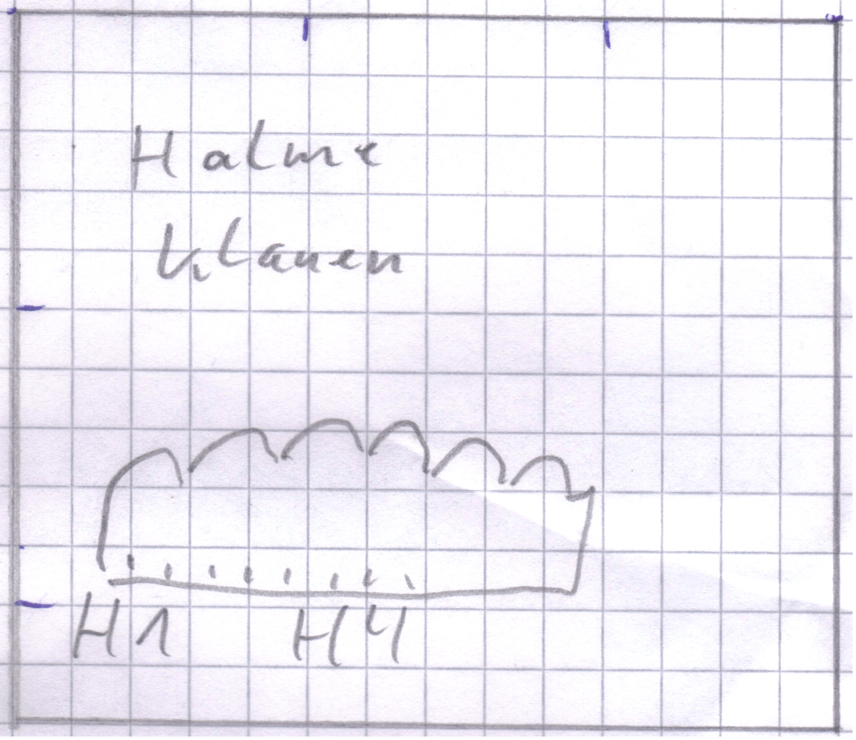 Halme
klauen
H1 H4